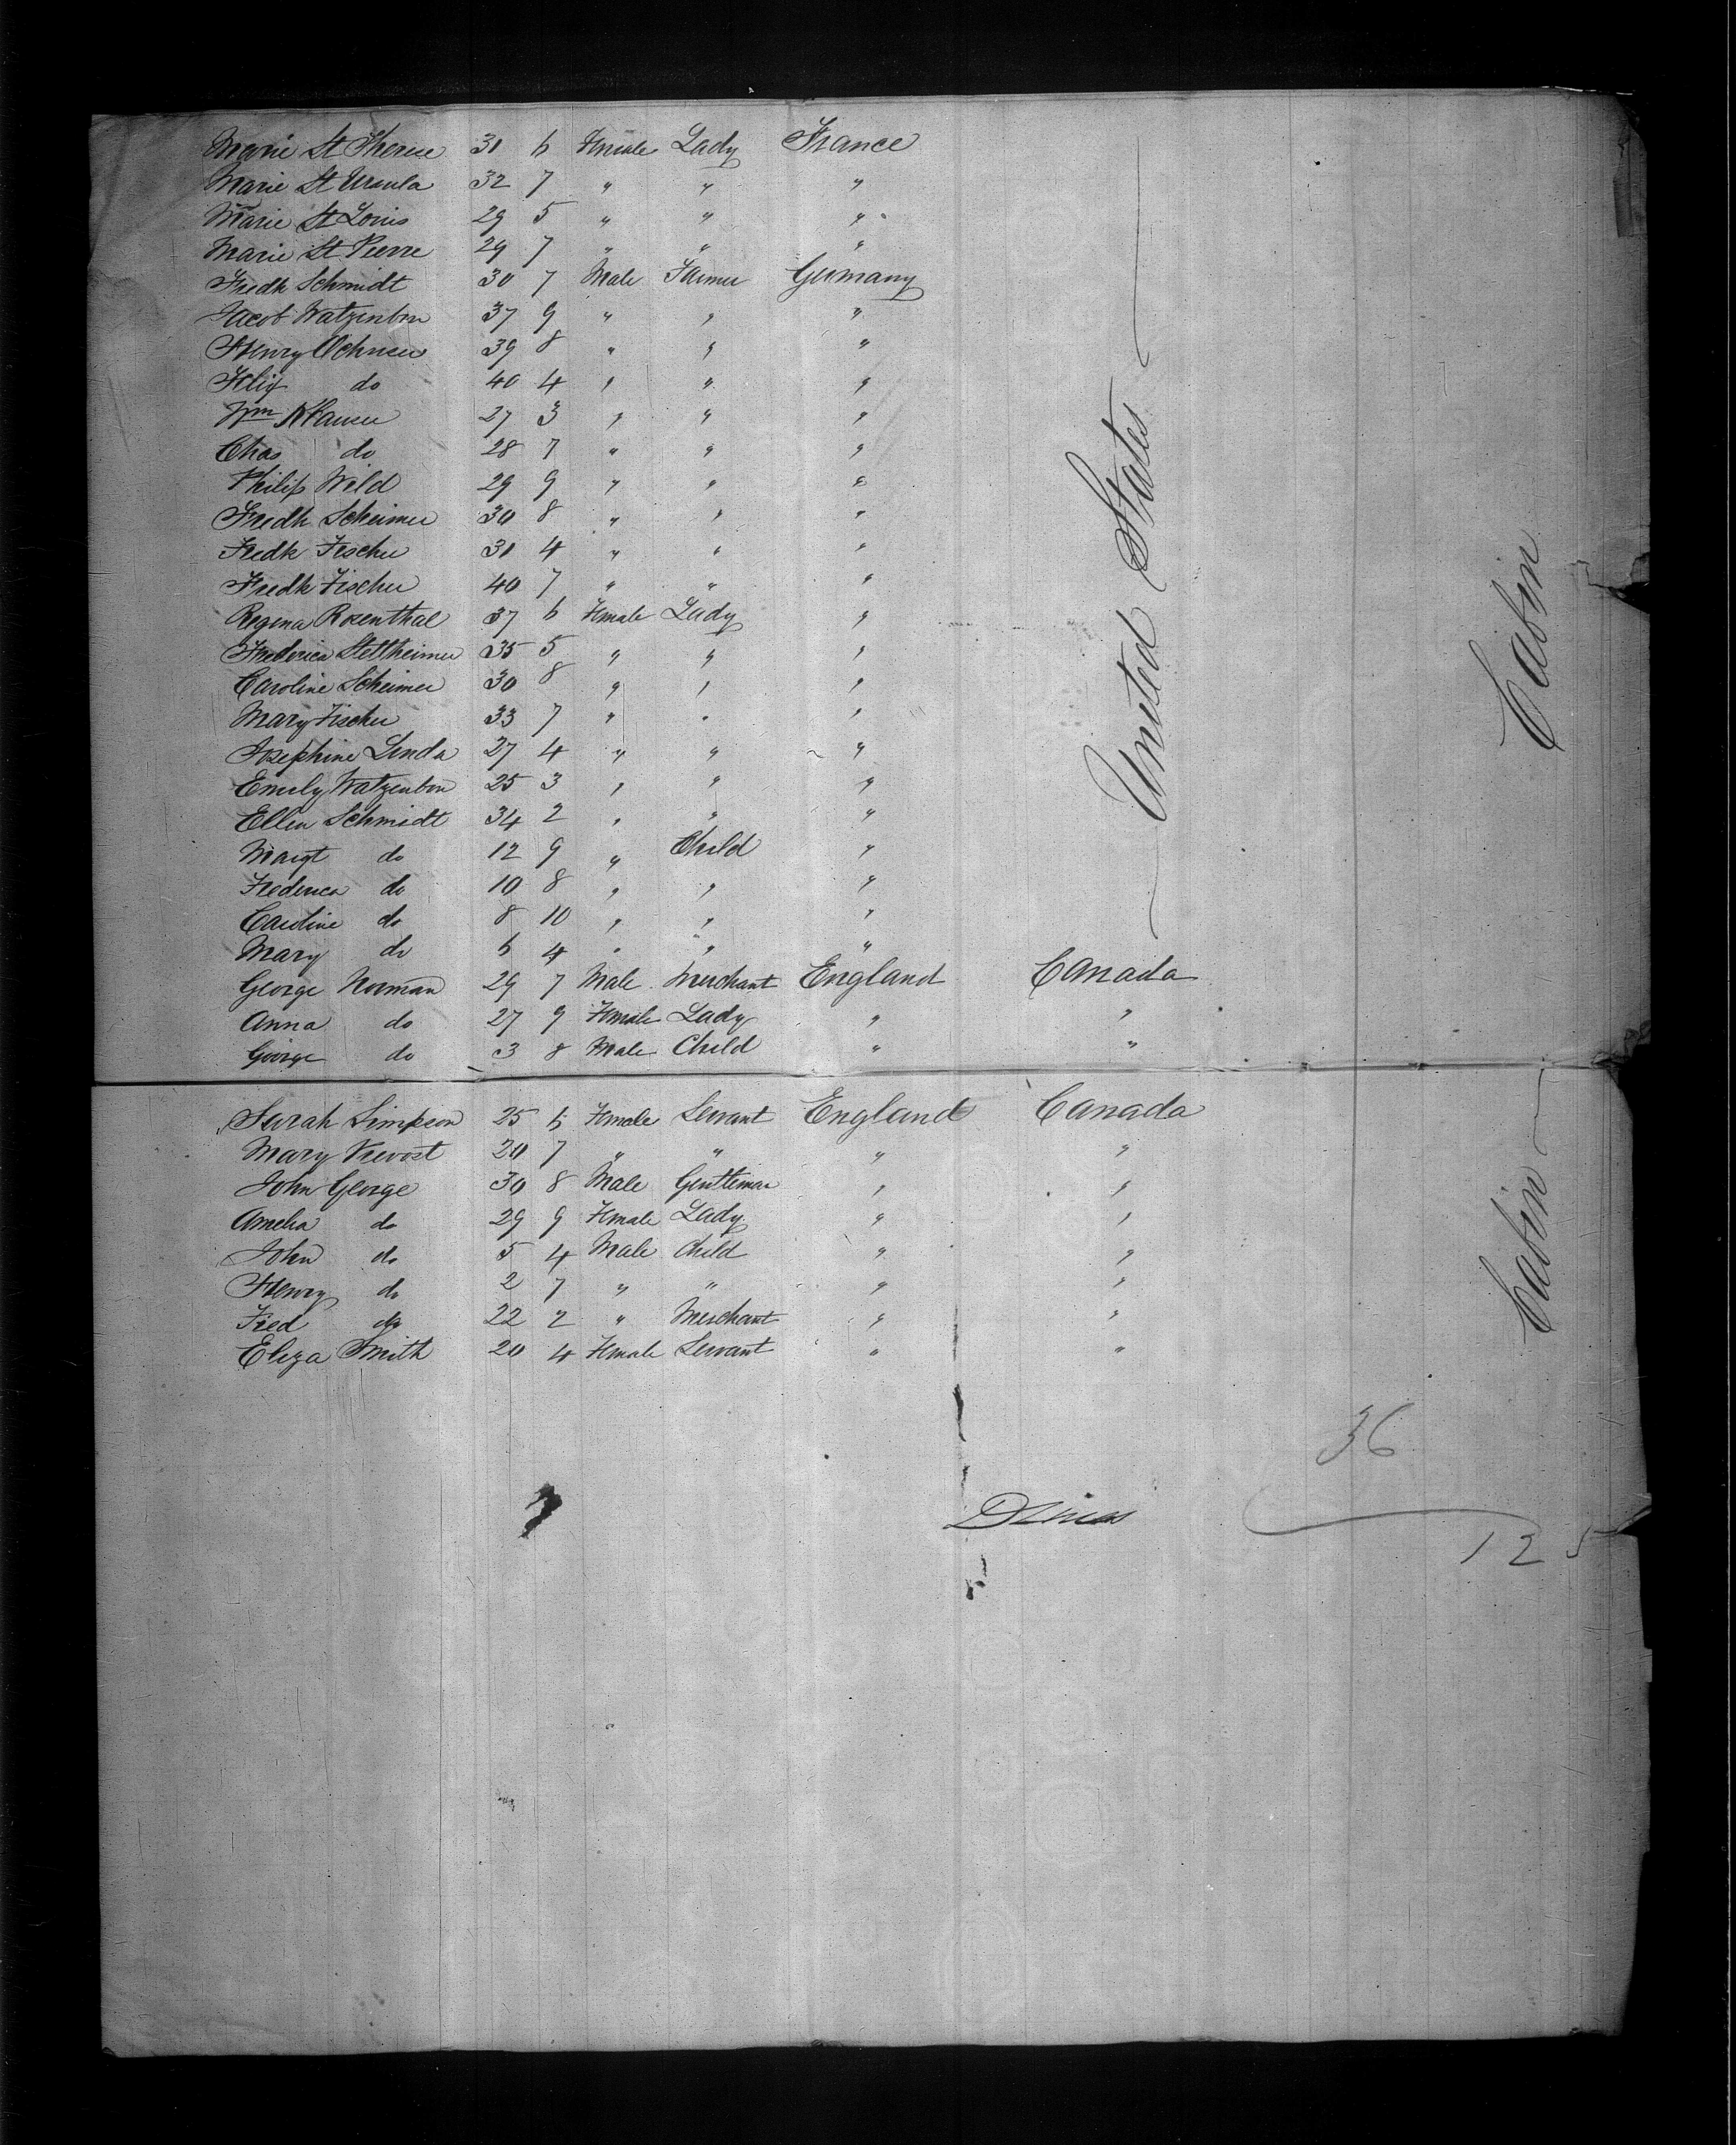 Marie St Therese 31 6 Female Lady France
Marie St Ursula 32 7 " " "
Marie St Louis 29 5 " " "
Marie St Pierre 29 7 " " "
Fredk Schmidt 30 7 Male Farmer Germany
Jacob Watzenbon 37 9 " " "
Henry Ochsner 39 8 " " "
Felix do 40 4 " " "
Wm Klauser 27 3 " " "
Chas do 28 7 " " "
Philip Wild 29 9 " " "
Fredk Scheimer 30 8 " " "
Fredk Fischer 31 4 " " "
Fredk Fischer 40 7 " " "
Regina Rosenthal 37 6 Female Lady "
Frederica Stettheimer 35 5 " " "
Caroline Scheimer 30 8 " " "
Mary Fischer 33 7 " " "
Josephine Linda 27 4 " " "
Emily Watzenbon 25 3 " " "
Ellen Schmidt 34 2 " " "
Margt do 12 9 " Child "
Frederica do 10 8 " " "
Caroline do 8 10 " " "
Mary do 6 4 " " "
United States
Cabin
George Norman 29 7 Male Merchant England Canada
Anna do 27 9 Female Lady " "
George do 3 8 Male Child " "
Sarah Simpson 25 6 Female Servant England Canada
Mary Prevost 20 7 " " " "
John George 30 8 Male Gentleman " "
Amelia do 29 9 Female Lady " "
John do 5 4 Male Child " "
Henry do 2 7 " " " "
Fred do 22 2 " Merchant " "
Eliza Smith 20 4 Female Servant " "
Cabin
36
125